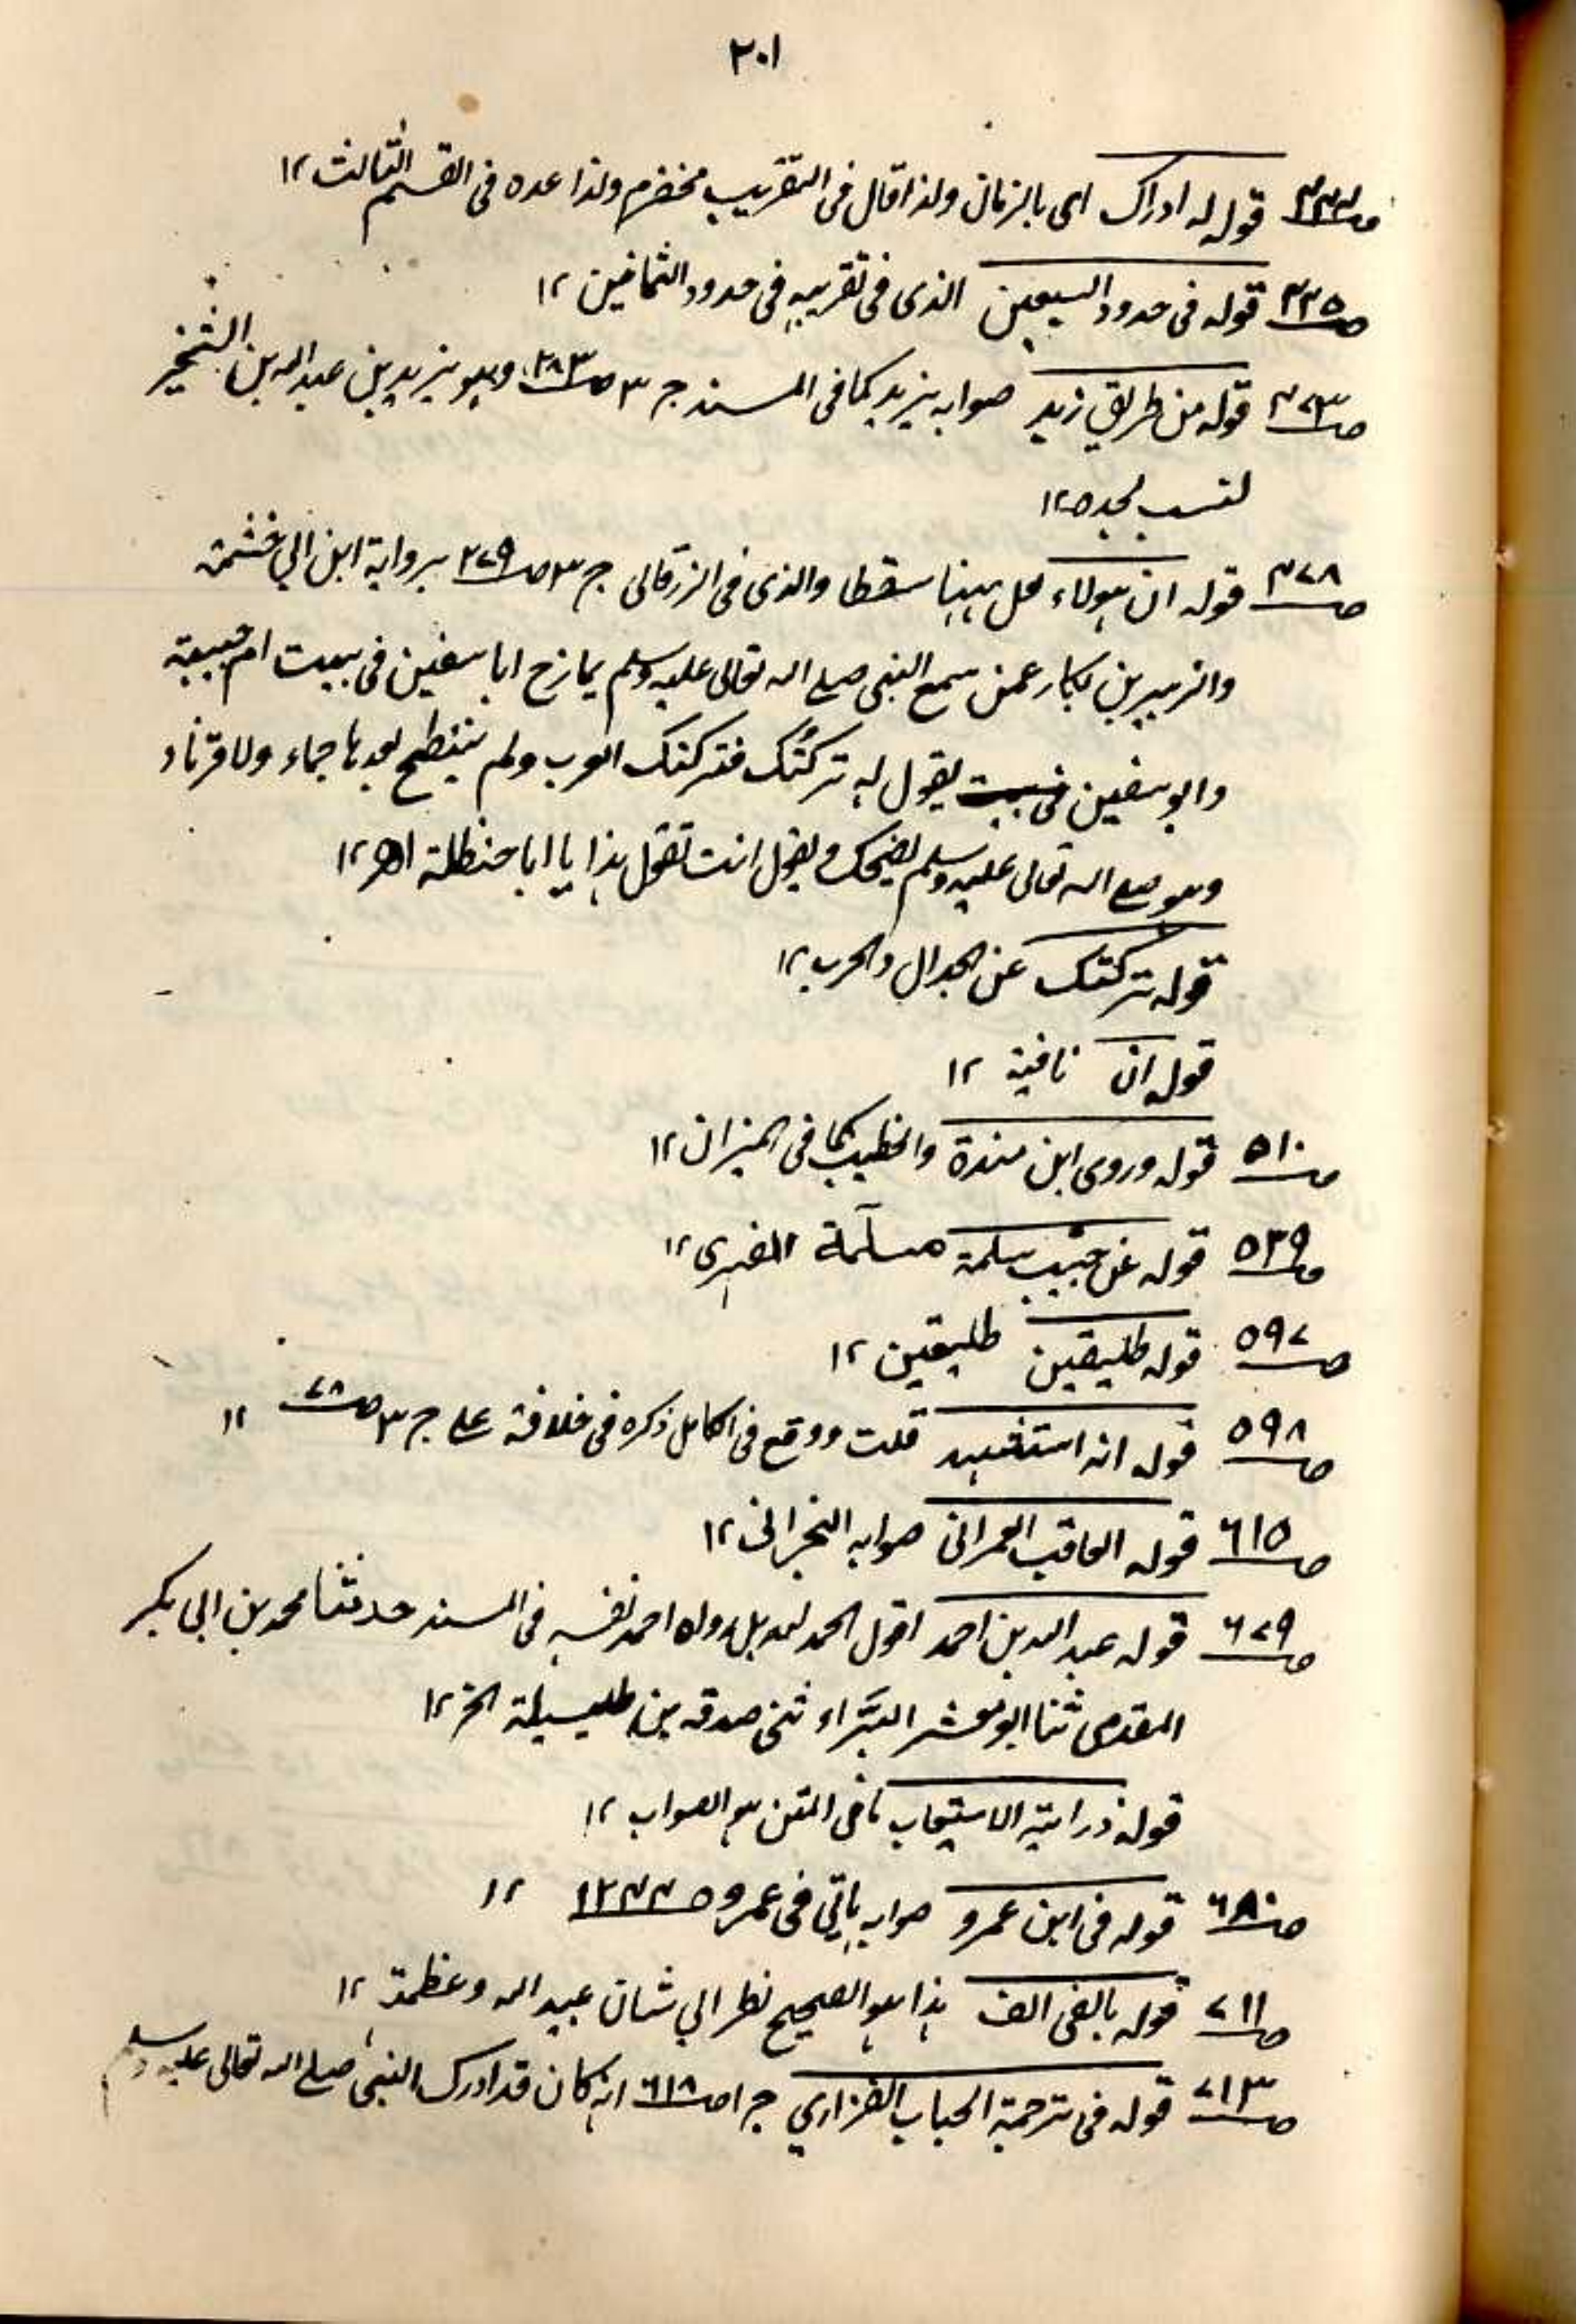 ٣٠١
قوله له ادراك ای بالزمان ولذا قال فی التقریب مخضرم ولذا عده فی القسم الثالث ١٢
ص٣٣٥ قوله فی حدود السبعین الذی فی تقریبه فی حدود الثمانین ١٢
ص٤٧٣ قوله من طریق زید صوابه یزید کما فی المسند ج ٣ ص٣٨٣ وهو یزید بن عبد الله بن الشخیر
لنسب لجده ١٢
ص٤٧٨ قوله ان هولاء لعل ههنا سقطا والذی فی الزرقانی ج ٣ ص٢٧٩ بروایة ابن ابی خثیمة
والزبیر بن بکار عمن سمع النبی صلی الله تعالی علیه وسلم یمازح ابا سفین فی بیت ام حبیبة
وابو سفین یقول له ترکتک فترکتک العرب ولم ینتطح بعدها جماء ولا قرناء
وهو صلی الله تعالی علیه وسلم یضحک ویقول انت تقول هذا یا ابا حنظلة اھ ١٢
قوله ترکتک عن الجدال والحرب ١٢
قوله ان نافیة ١٢
ص٥١٠ قوله وروی ابن مندة والخطیب کما فی المیزان ١٢
ص٥٣٩ قوله عن حبیب سلمة مسلمة الفهری ١٢
ص٥٩٧ قوله طلیقین طلیقین ١٢
ص٥٩٨ قوله انه استشهد قلت ووقع فی الکامل ذکره فی خلافة علی ج ٣ ص٧٨ ١٢
ص٦١٥ قوله العاقب العمرانی صوابه النجرانی ١٢
ص٦٧٩ قوله عبد الله بن احمد اقول الحمد لله بل رواه احمد نفسه فی المسند حدثنا محمد بن ابی بکر
المقدمی ثنا ابو معشر البراء ثنی صدقه بن طیسلة الخ ١٢
قوله الاستیعاب فی المتن هو الصواب ١٢
ص٦٨٠ قوله فی ابن عمرو صوابه یاتی فی عمرو ص١٢٤٤ ١٢
ص٧١١ قوله بالفی الف هذا هو الصحیح نظرا الی شان عبید الله وعظمة ١٢
ص٧١٣ قوله فی ترجمة الحباب الفزاری ج ١ ص٦١٨ انه کان قد ادرک النبی صلی الله تعالی علیه وسلم